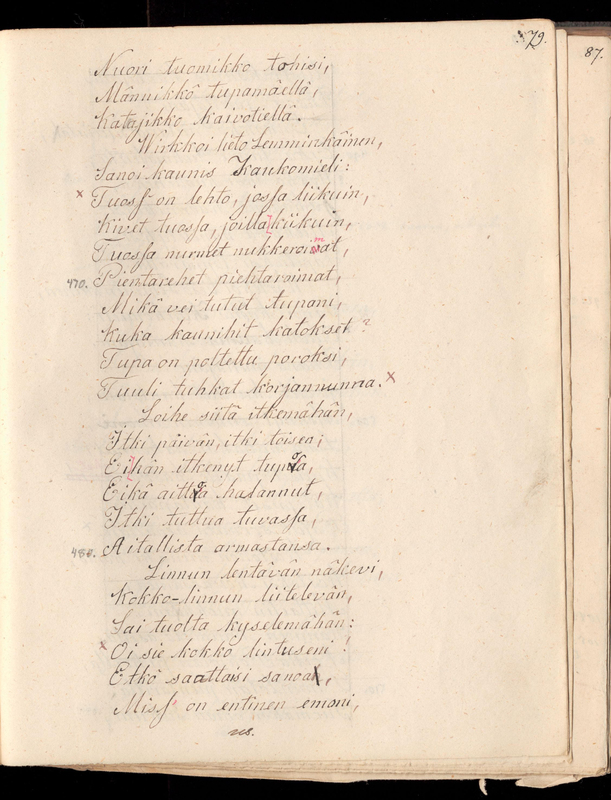 379.
87.
Nuori tuomikko tohisi,
Männikkö tupamäellä,
Katajikko kaivotiellä.
Wirkkoi lieto Lemminkäinen,
Sanoi kaunis Kaukomieli:
× Tuoss' on lehto, jossa liikuin,
Kivet tuossa, joilla kiikuin,
Tuossa nurmet nukkeroimat,
470. Pientarehet piehtaroimat,
Mikä vei tutut tupani,
Kuka kaunihit katokset?
Tupa on poltettu poroksi,
Tuuli tuhkat korjannunna. ×
Loihe siitä itkemähän,
Itki päivän, itki toisen;
Eihän itkenyt tupoa,
Eikä aittoa halannut,
Itki tuttua tuvassa,
480. Aitallista armastansa.
Linnun lentävän näkevi,
Kokko-linnun liitelevän,
Sai tuolta kyselemähän:
× Oi sie kokko lintuseni!
Etkö saattaisi sanoa,
Miss' on entinen emoni,